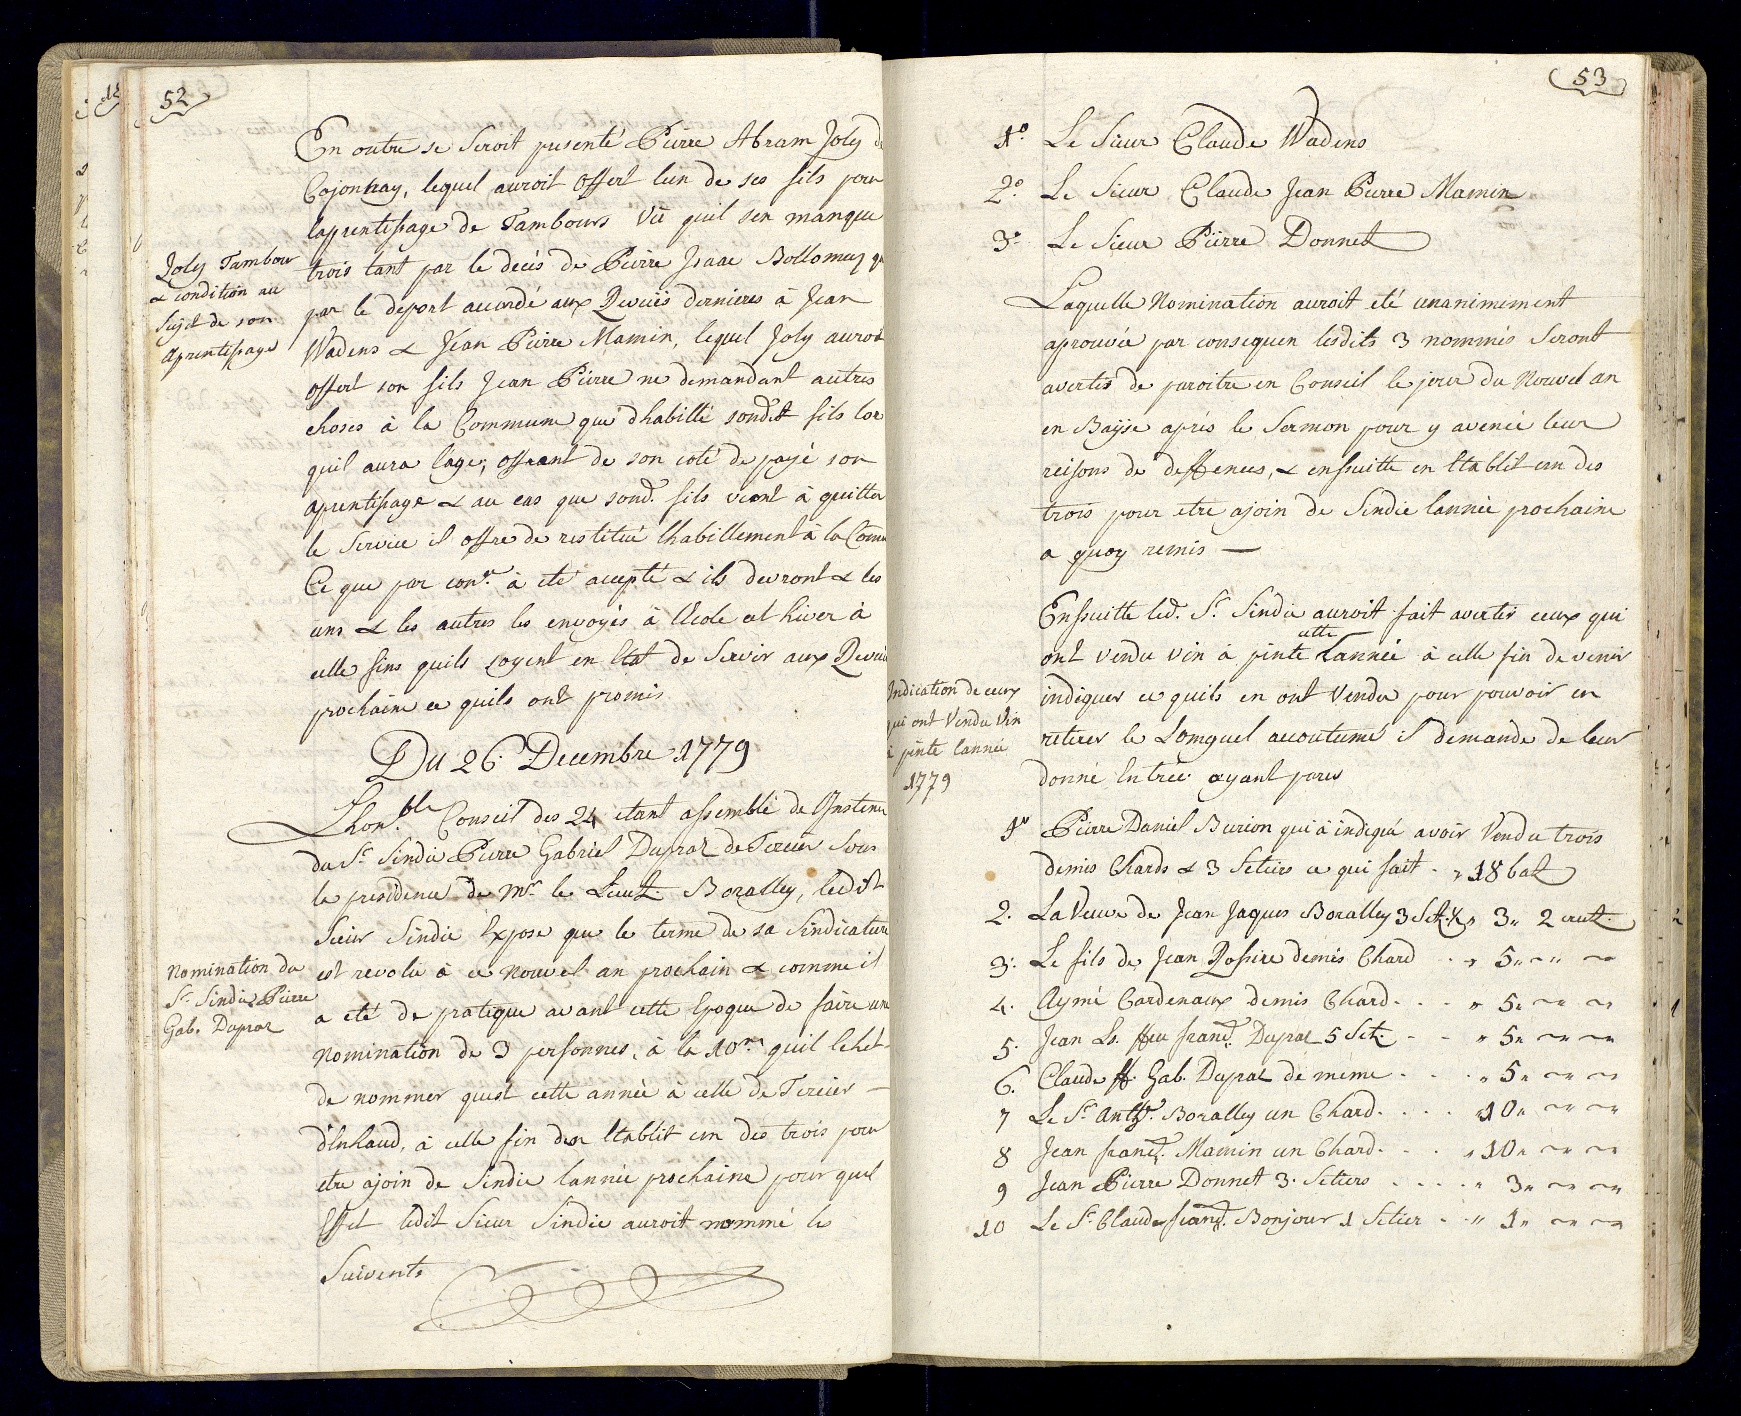 52
En outre se Seroit presenté Pierre Abram Joly de
Cojonnay, lequel auroit Offert l'un de ses fils pour
laprentissage de Tambours Vû quil sen manque
trois tant par le decès de Pierre Isaac Bollomey q
par le deport accordé aux Revuës dernieres à Jean
Wadens & Jean Pierre Mamin, lequel Joly auroit
offert son fils Jean Pierre ne demandant autres
choses à la Commune que dhabillé sondit fils lor
quil aura lage; offrant de son coté de payé son
aprentissage & au cas que sond. fils vient à quitter
le Service il offre de restitué lhabillement à la Com
Ce que par con.r à eté accepté & ils devront & les
uns & les autres les envoyés à l'Ecole cet hiver à
celle fins quils soyent en Etat de Servir aux Revuë
prochaine ce quils ont promis
Joly Tambour
& condition au
Sujet de son
aprentissage
Du 26. Decembre 1779
Lhon.ble Conseil des 24 etant assemblé de l'Instence
du S.r Sindic Pierre Gabriel Dupraz de Tercier Sous
la presidence de M.r le Lieut. Boralley, ledit
Sieur Sindic Expose que le terme de sa Sindicature
est revolu à ce nouvel an prochain & comme il
a eté de pratique avant cette Epoque de faire une
nomination de 3 personnes, à la 10.ne quil lehét
de nommer quest cette année à celle de Tercier
d'Enhaud, à celle fin den Etablit un des trois pour
etre ajoin de Sindic lannée prochaine pour quel
Effet ledit Sieur Sindic auroit nommé le
Suivents
Nomination du
S.r Sindic Pierre
Gab. Dupraz
53
1.o Le Sieur Claude Wadens
2.o Le Sieur Claude Jean Pierre Mamin
3.o Le Sieur Pierre Donnet
Laquelle Nomination auroit eté unanimement
aprouvée par consequen lesdits 3 nommés Seront
avertis de paroitre en Conseil le jour du Nouvel an
en Bayse après le Sermon pour y avencé leur
reisons de deffences, & enssuitte en Etablit un des
trois pour etre ajoin de Sindic lannée prochaine
a quoy remis —
Enssuitte led. S.r Sindic auroit fait avertir ceux qui
ont vendu vin à pinte cette Lannée à celle fin de venir
indiquer ce quils en ont Vendu pour pouvoir en
retirer le Lomguel accoutumé il demande de leur
donné Entrée ayant paru
Indication de ceux
qui ont Vendu Vin
à pinte lannée
1779
1.o Pierre Daniel Burion qui à indiqué avoir Vendu trois
demis Chards & 3 Setiers ce qui fait . „ 18 batz
2. La Veuve de Jean Jaques Boralley 3 Set. ½ „ 3„ 2 crutz.
3. Le fils de Jean Rossire demis Chard . . „ 5„ „ „
4. Aymé Cardenaux demis Chard . . . „ 5„ „ „
5. Jean Ls. ffeu franç. Dupraz 5 Set. . . „ 5„ „ „
6. Claude ff. Gab. Dupraz de meme . . . „ 5„ „ „
7 Le S.r Anth.e Boralley un Chard. . . . „ 10„ „ „
8 Jean franç. Mamin un Chard. . . . „ 10„ „ „
9 Jean Pierre Donnet 3. Setiers . . . . „ 3„ „ „
10 Le S.r Claude franç. Bonjour 1 Setier . . „ 1„ „ „